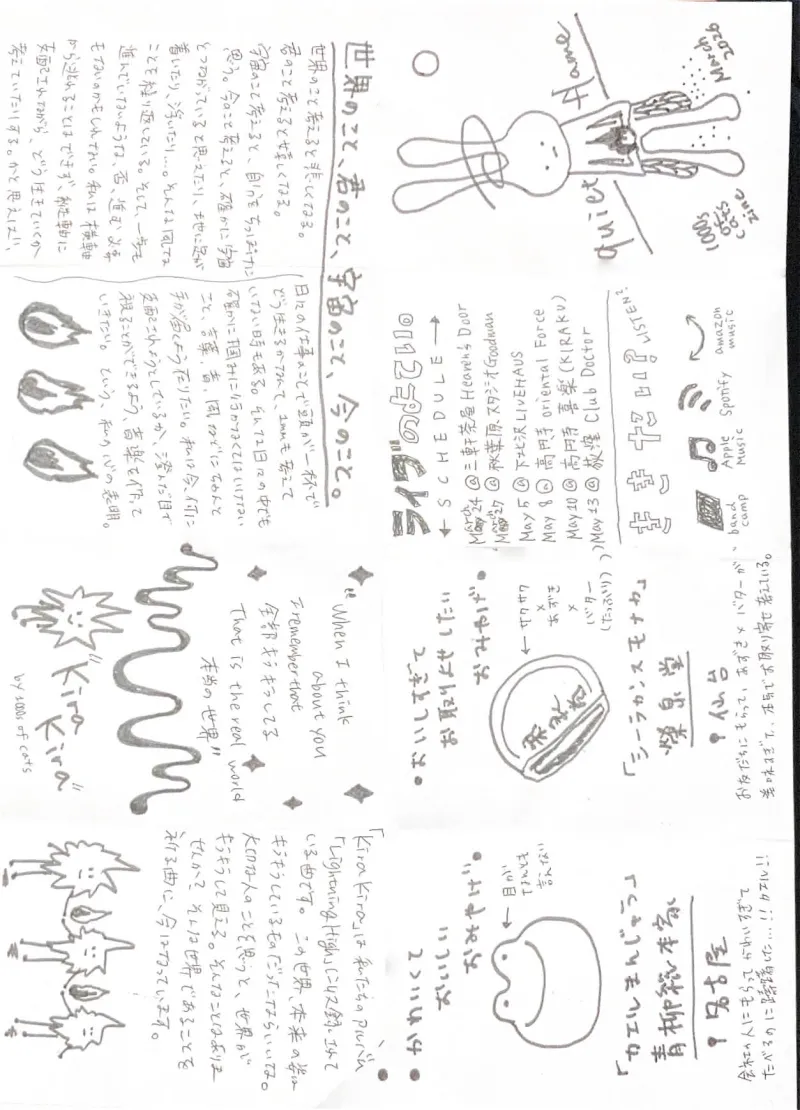 quiet
flame
March
2026
1000s
of
cats
zine
世界のこと、君のこと、宇宙のこと、今のこと。
世界のこと考えると悲しくなる。
君のこと考えると嬉しくなる。
宇宙のこと考えると、自分もちっぽけに
思う。今のこと考えると、確かに宇宙
とつながっていると思えたり、地に足が
着いたり、浮いたり…。そんな間で
ことを繰り返している。そして、一歩も
進んでいないような、否、進む必要
もないのかもしれない。私は横軸
から逃れることはできず、縦軸に
支配されながら、どう生きていくか
考えていたりする。かと思えば、
日々の仕事のことで頭が一杯で
どう生きるかなんて、1mmも考えて
いない日もある。そんな日々の中でも
確かに周りに
こと、言葉、音、
手が届くよう在りたい。私は今、何に
支配されようとしているか、澄んだ目で
視ることができるよう、音楽を作って
いきたい。という、私の心の表明。
ライブのよてい。
← SCHEDULE →
March 24 @ 三軒茶屋 Heaven's Door
March 27 @ 秋葉原 スタジオGoodman
May 5 @ 下北沢 LIVEHAUS
May 8 @ 高円寺 Oriental Force
May 10 @ 高円寺 喜楽 (KIRAKU)
May 13 @ 荻窪 Club Doctor
ききたい? LISTEN?
band
camp
Apple
Music
Spotify
amazon
music
"When I think
about you
I remember that
全部キラキラしてる
That is the real world
本当の世界"
"Kira
Kira"
by 1000s of cats
「Kira Kira」は私たちのアルバム
「Lightning High」に収録されて
いる曲です。この世界、本来の姿は
キラキラしているものだったらいいな。
大切な人のことを思うと、世界が
キラキラして見える。そんなことはありま
せんか？そんな世界であることを
祈る曲に、今はなっています。
・おいしすぎて
お取りよせしたい
おみやげ・
← サクサク
×
あずき
×
バター
(たっぷり)
「シーラカンスモナカ」
榮泉堂
仙台
お友だちにもらって、あずき×バターが、
美味すぎて、本気でお取り寄せ考えている。
・かわいくて
おいしい
おみやげ・
← 目が
なんとも
言えない
「カエルまんじゅう」
青柳総本家
名古屋
会社の人にもらってかわいすぎて
たべるのに躊躇した…!! カエル!!